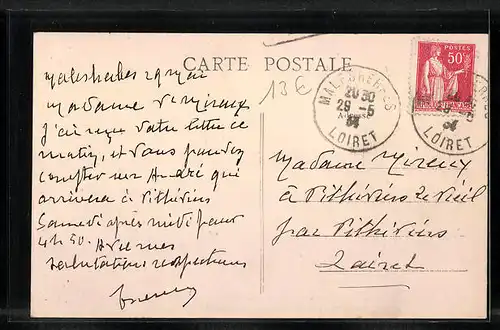 CARTE POSTALE
13€
POSTES
50c
MALESHERBES
20 30
29-5
34
LOIRET
Malesherbes 29 Mai
Madame Vve Mireux
J'ai reçu votre lettre ce
matin, et vous pouvez
compter sur André qui
arrivera à Pithiviers
Samedi après midi pour
4h50. Avec mes
salutations respectueuses
Madame Mireux
à Pithiviers le Vieil
par Pithiviers
Loiret